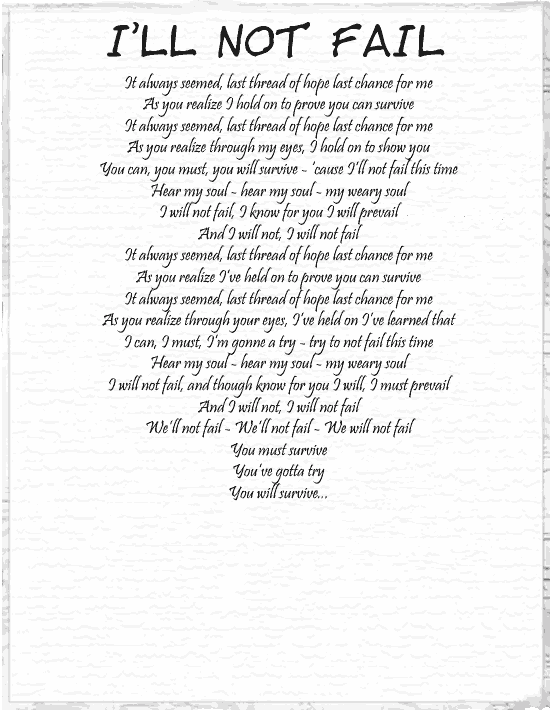 I'LL NOT FAIL
It always seemed, last thread of hope last chance for me
As you realize I hold on to prove you can survive
It always seemed, last thread of hope last chance for me
As you realize through my eyes, I hold on to show you
You can, you must, you will survive ~ 'cause I'll not fail this time
Hear my soul ~ hear my soul ~ my weary soul
I will not fail, I know for you I will prevail
And I will not, I will not fail
It always seemed, last thread of hope last chance for me
As you realize I've held on to prove you can survive
It always seemed, last thread of hope last chance for me
As you realize through your eyes, I've held on I've learned that
I can, I must, I'm gonne a try ~ try to not fail this time
Hear my soul ~ hear my soul ~ my weary soul
I will not fail, and though know for you I will, I must prevail
And I will not, I will not fail
We'll not fail ~ We'll not fail ~ We will not fail
You must survive
You've gotta try
You will survive...